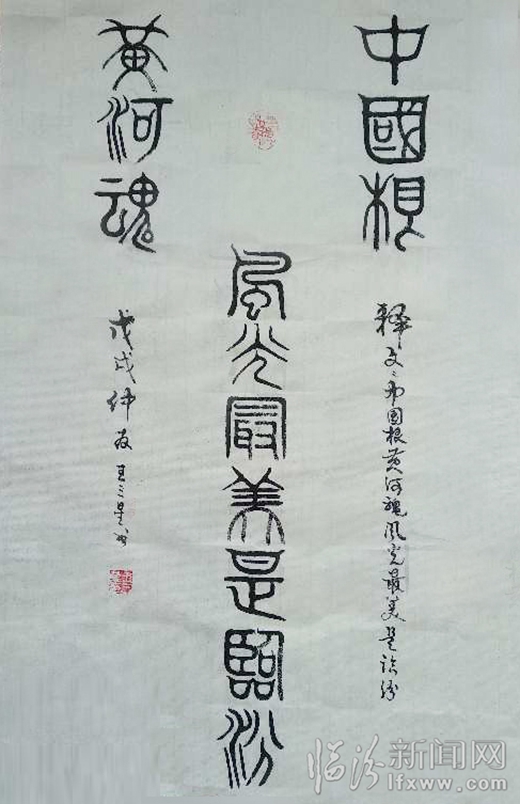 中國根
黃河魂
風光最美是臨汾
釋文：中国根黄河魂風光最美是临汾
戊戌仲
临汾新闻网
lfxww.com